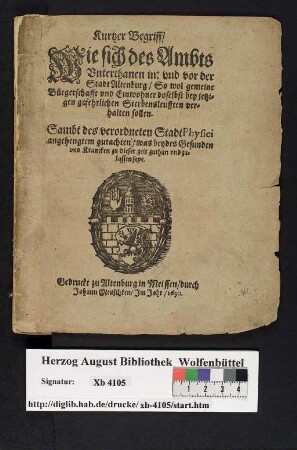 Kurtzer Begriff/
Wie sich des Ambts
Vnterthanen in vnd vor der
Stadt Altenburg/ So wol gemeine
Bürgerschafft vnd Einwohner doselbst bey jetzi-
gen gefehrlichen Sterbensleufften ver-
halten sollen.
Sambt des verordneten Stadt Physici
angehengtem gutachten/ was beydes Gesunden
vnd Krancken zu dieser zeit guthan vnd zu-
lassen seye.
Gedruckt zu Altenburg in Meissen/durch
Johann Meuschken/ Im Jahr/1630.
Herzog August Bibliothek Wolfenbüttel
Signatur: Xb 4105
1 2 3 4
http://diglib.hab.de/drucke/xb-4105/start.htm